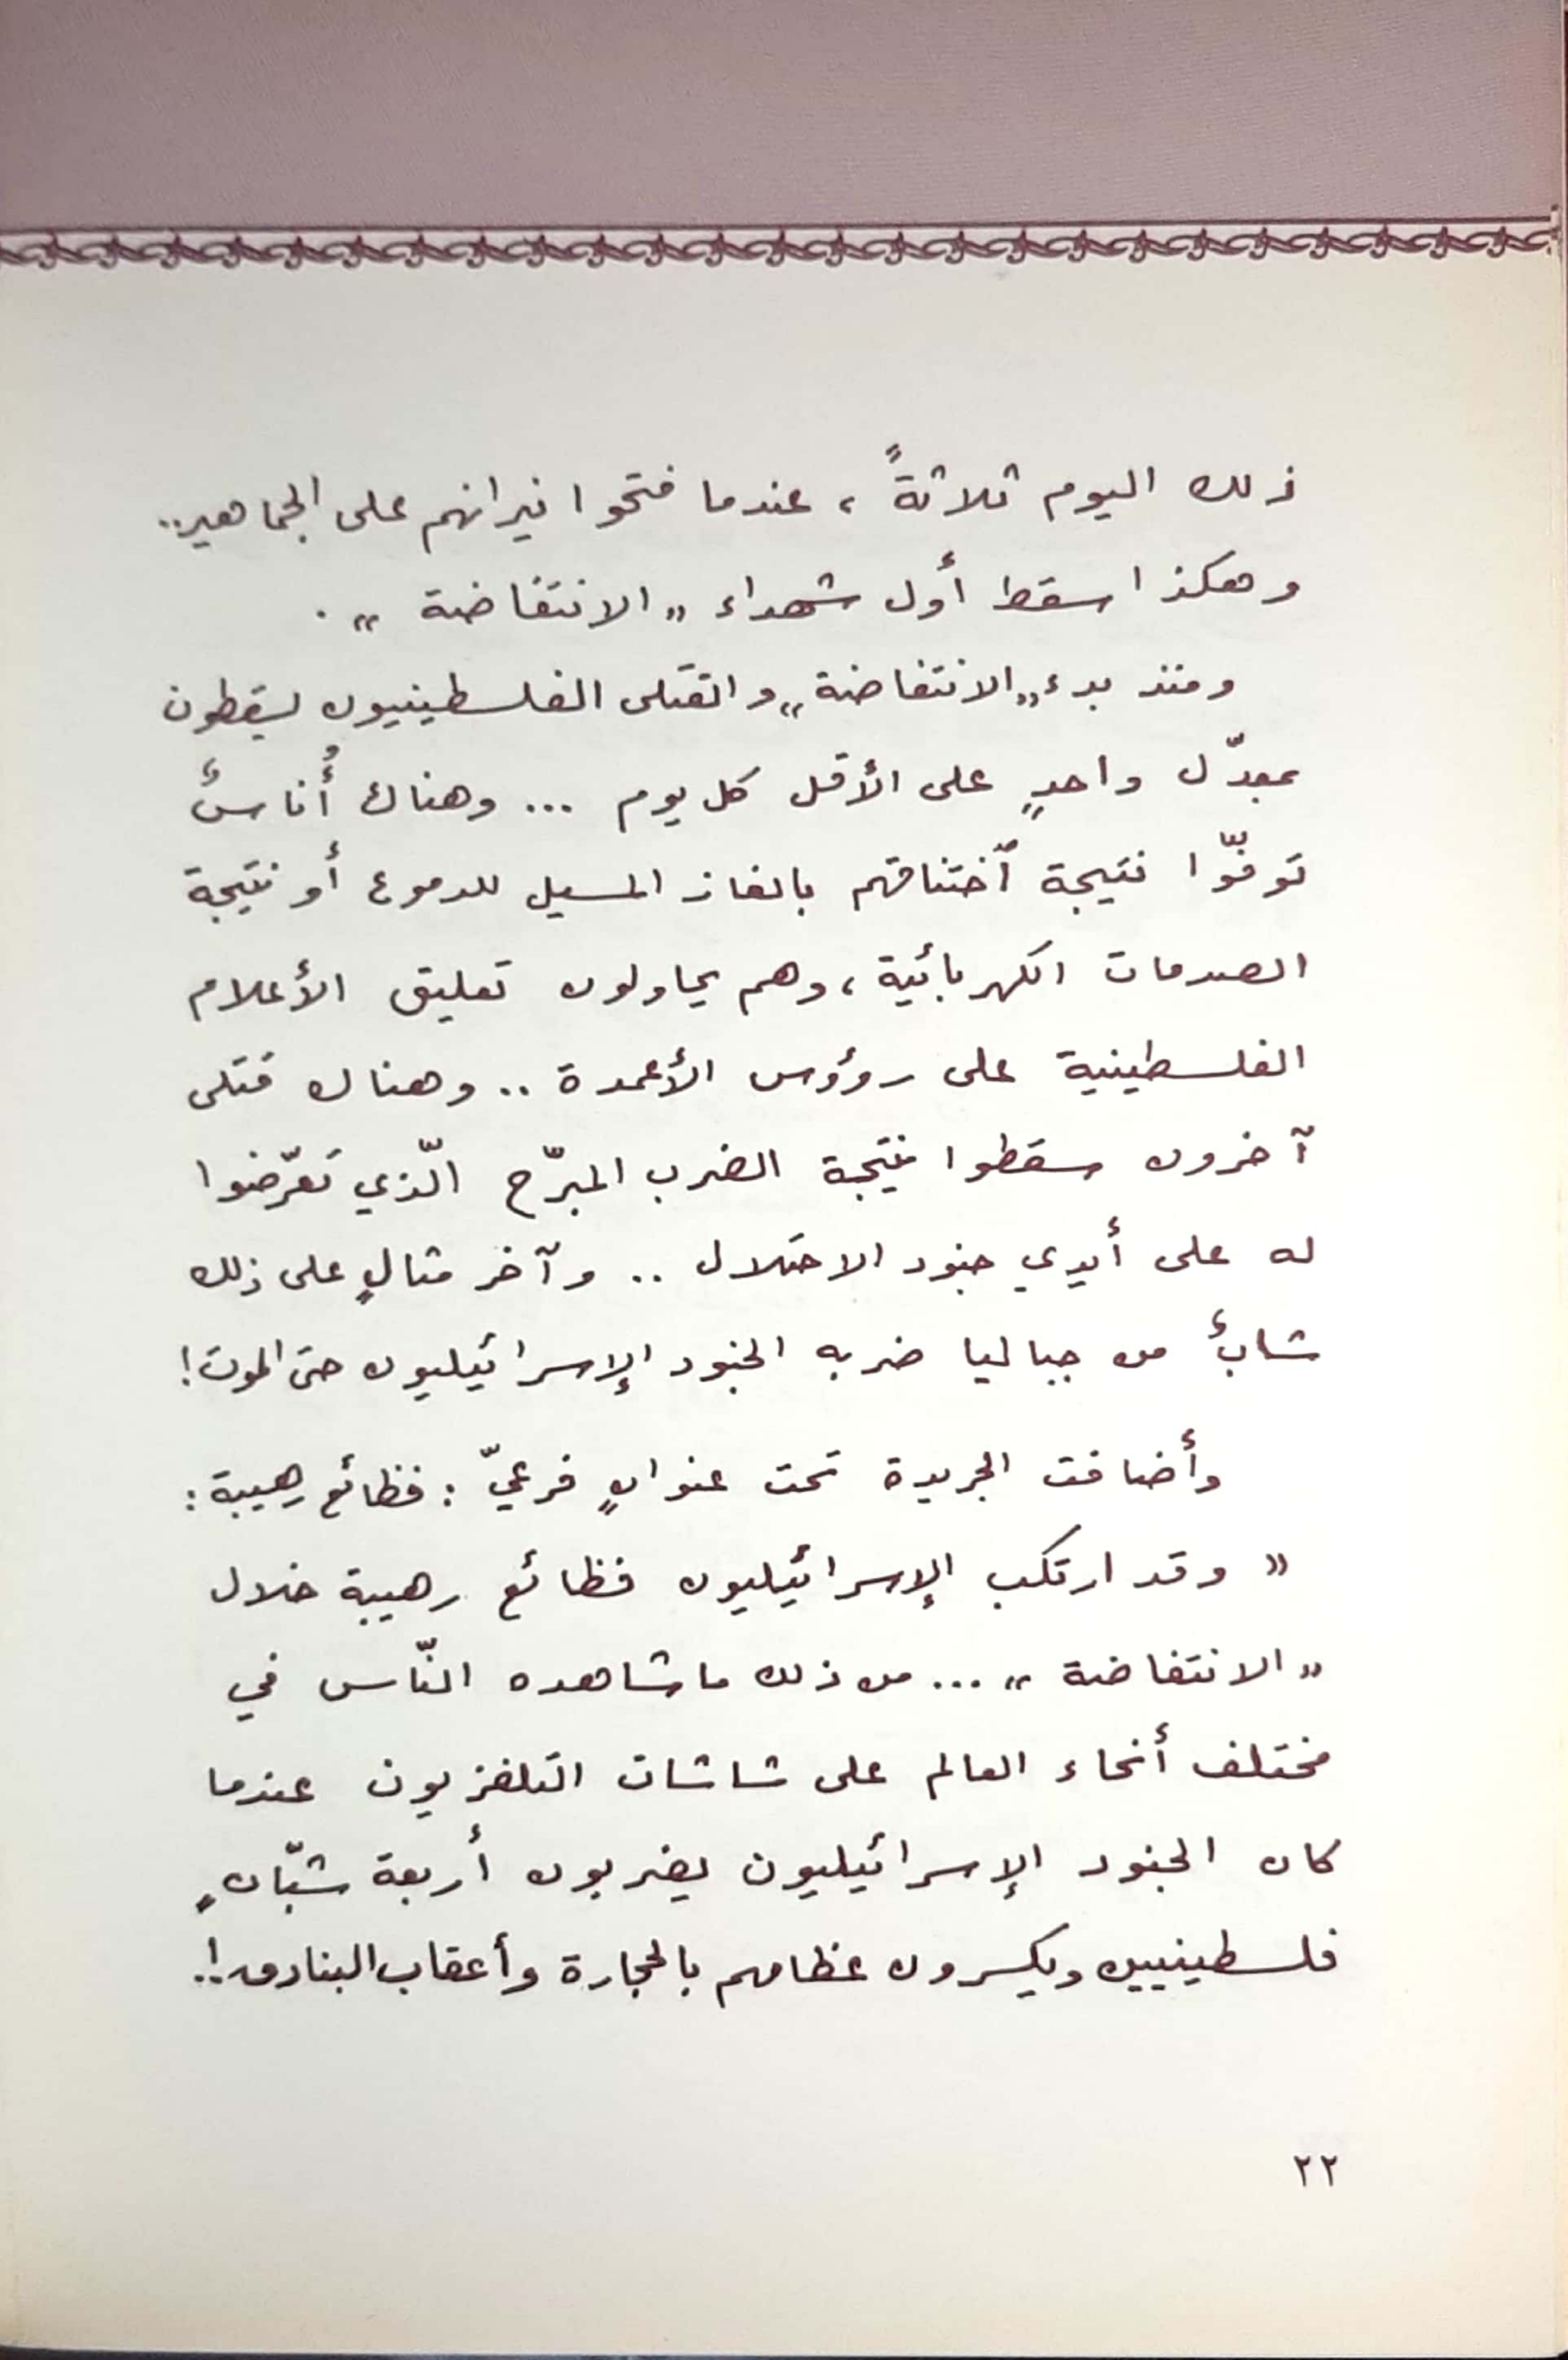 ذلك اليوم ثلاثةً ، عندما فتحوا نيرانهم على الجماهير..
وهكذا سقط أول شهداء „ الانتفاضة „ .
ومنذ بدء „الانتفاضة„ والقتلى الفلسطينيون يسقطون
بمعدّل واحدٍ على الأقل كل يوم ... وهناك أُناسٌ
توفّوا نتيجة ٱختناقهم بالغاز المسيل للدموع أو نتيجة
الصدمات الكهربائية ، وهم يحاولون تعليق الأعلام
الفلسطينية على رؤوس الأعمدة .. وهناك قتلى
آخرون سقطوا نتيجة الضرب المبرّح الّذي تعرّضوا
له على أيدي جنود الاحتلال .. وآخر مثالٍ على ذلك
شابٌ من جباليا ضربه الجنود الإسرائيليون حتى الموت !
وأضافت الجريدة تحت عنوانٍ فرعيّ : فظائع رهيبة :
« وقد ارتكب الإسرائيليون فظائع رهيبة خلال
„ الانتفاضة „ ... من ذلك ما شاهده النّاس في
مختلف أنحاء العالم على شاشات التلفزيون عندما
كان الجنود الإسرائيليون يضربون أربعة شبّانٍ
فلسطينيين ويكسرون عظامهم بالحجارة وأعقاب البنادق..!
٢٢